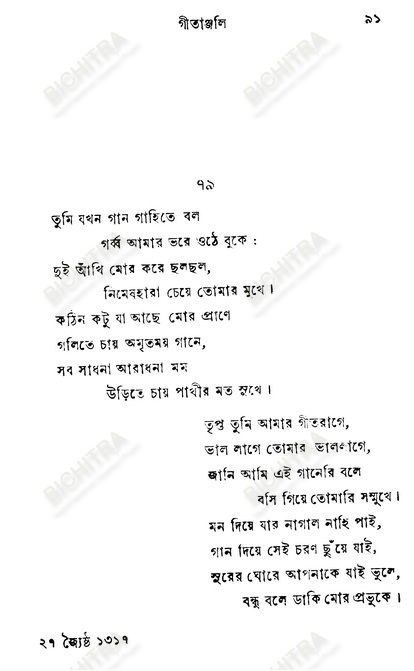 গীতাঞ্জলি ৯১
৭৯
তুমি যখন গান গাহিতে বল
গর্ব্ব আমার ভরে ওঠে বুকে :
দুই আঁখি মোর করে ছলছল,
নিমেষহারা চেয়ে তোমার মুখে।
কঠিন কটু যা আছে মোর প্রাণে
গলিতে চায় অমৃতময় গানে,
সব সাধনা আরাধনা মম
উড়িতে চায় পাখীর মত সুখে।
তৃপ্ত তুমি আমার গীতরাগে,
ভাল লাগে তোমার ভাললাগে,
জানি আমি এই গানেরি বলে
বসি গিয়ে তোমারি সম্মুখে।
মন দিয়ে যার নাগাল নাহি পাই,
গান দিয়ে সেই চরণ ছুঁয়ে যাই,
সুরের ঘোরে আপনাকে যাই ভুলে,
বন্ধু বলে ডাকি মোর প্রভুকে।
২৭ জ্যৈষ্ঠ ১৩১৭
BICHITRA
BICHITRA
BICHITRA
BICHITRA
BICHITRA
BICHITRA
BICHITRA
BICHITRA